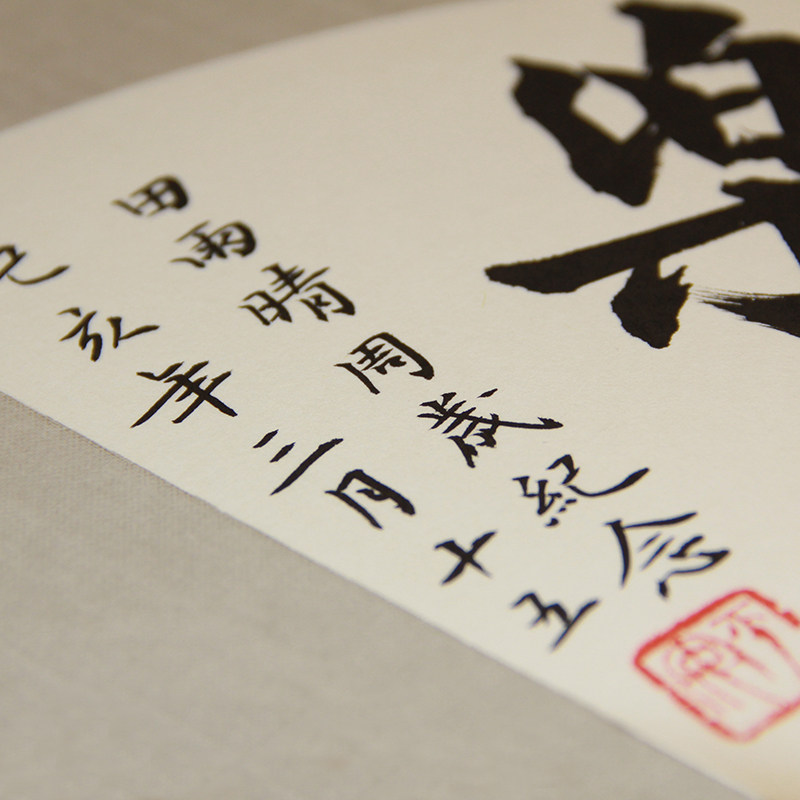 田雨晴周歲紀念
己亥年三月十五